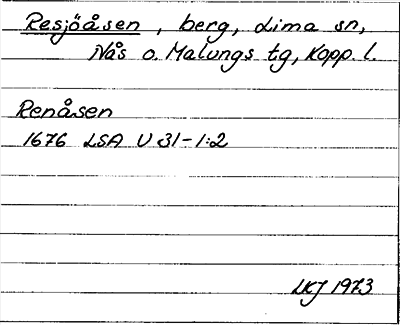 Resjöåsen, berg, Lima sn,
Nås o. Malungs tg, Kopp. l.
Renåsen
1676 LSA U 31-1:2
LKJ 1973